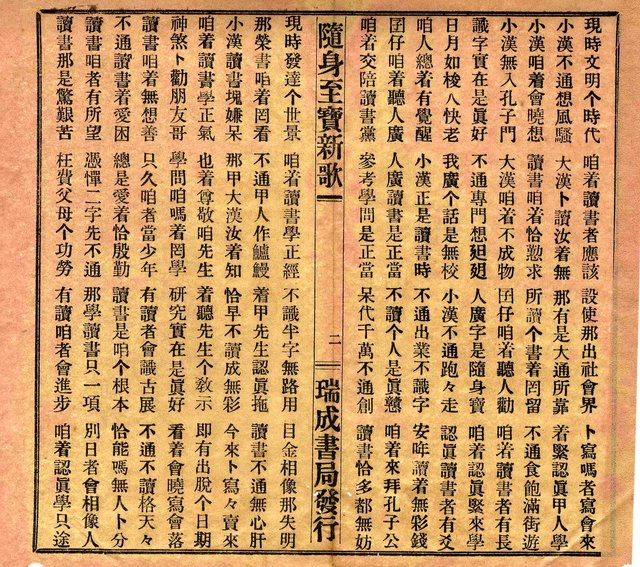 現時文明个時代 咱着讀書者應該 設使那出社會界 卜寫嗎者寫會來
小漢不通想風騷 大漢卜讀汝着無 那有是大通所靠 着緊認眞甲人學
小漢咱着會曉想 讀書咱着恰懃求 所讀个書着罔留 不通食飽滿街遊
小漢無入孔子門 大漢咱着不成物 囝仔咱着聽人勸 咱着讀書者有長
識字實在是眞好 不通專門想廻廻 人廣字是隨身寶 咱着認眞緊來學
日月如梭八快老 我廣个話是無校 小漢不通跑々走 認眞讀書者有爻
咱人總着有覺醒 小漢正是讀書時 不通出業不識字 安呠讀着無彩錢
囝仔咱着聽人廣 人廣讀書是正當 不讀个人是眞戇 咱着來拜孔子公
咱着交陪讀書黨 參考學問是正當 呆代千萬不通創 讀書恰多都無妨
隨身至寶新歌 二 瑞成書局發行
現時發達个世景 咱着讀書學正經 不識半字無路用 目金相像那失明
那榮書咱着罔看 不通甲人作鱸鰻 着甲先生認眞拖 讀書不通無心肝
小漢讀書塊嫌呆 那甲大漢汝着知 恰早不讀成無彩 今來卜寫々賣來
咱着讀書學正氣 也着尊敬咱先生 着聽先生个敎示 即有出脫个日期
神煞卜勸朋友哥 學問咱嗎着罔學 研究實在是眞好 看着會曉寫會落
讀書咱着無想善 只久咱者當少年 有讀者會識古展 不通不讀格天々
不通讀書着愛困 總是愛着恰殷勤 讀書是咱个根本 恰能嗎無人卜分
讀書咱者有所望 憑憚二字先不通 那學讀書只一項 別日者會相像人
讀書那是驚艱苦 枉費父母个功勞 有讀咱者會進步 咱着認眞學只途